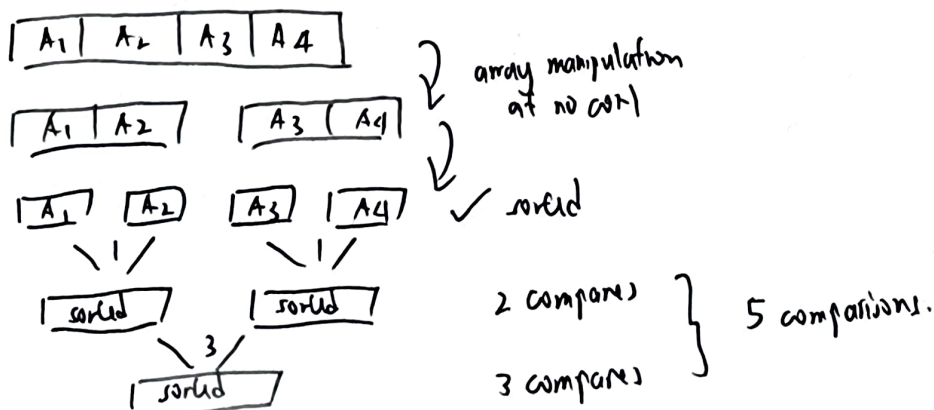 A1 A2 A3 A4
array manipulation
at no cost
A1 A2 A3 A4
A1 A2 A3 A4 ✓ sorted
1 1
sorted sorted 2 compares
5 comparisions.
3
sorted 3 compares